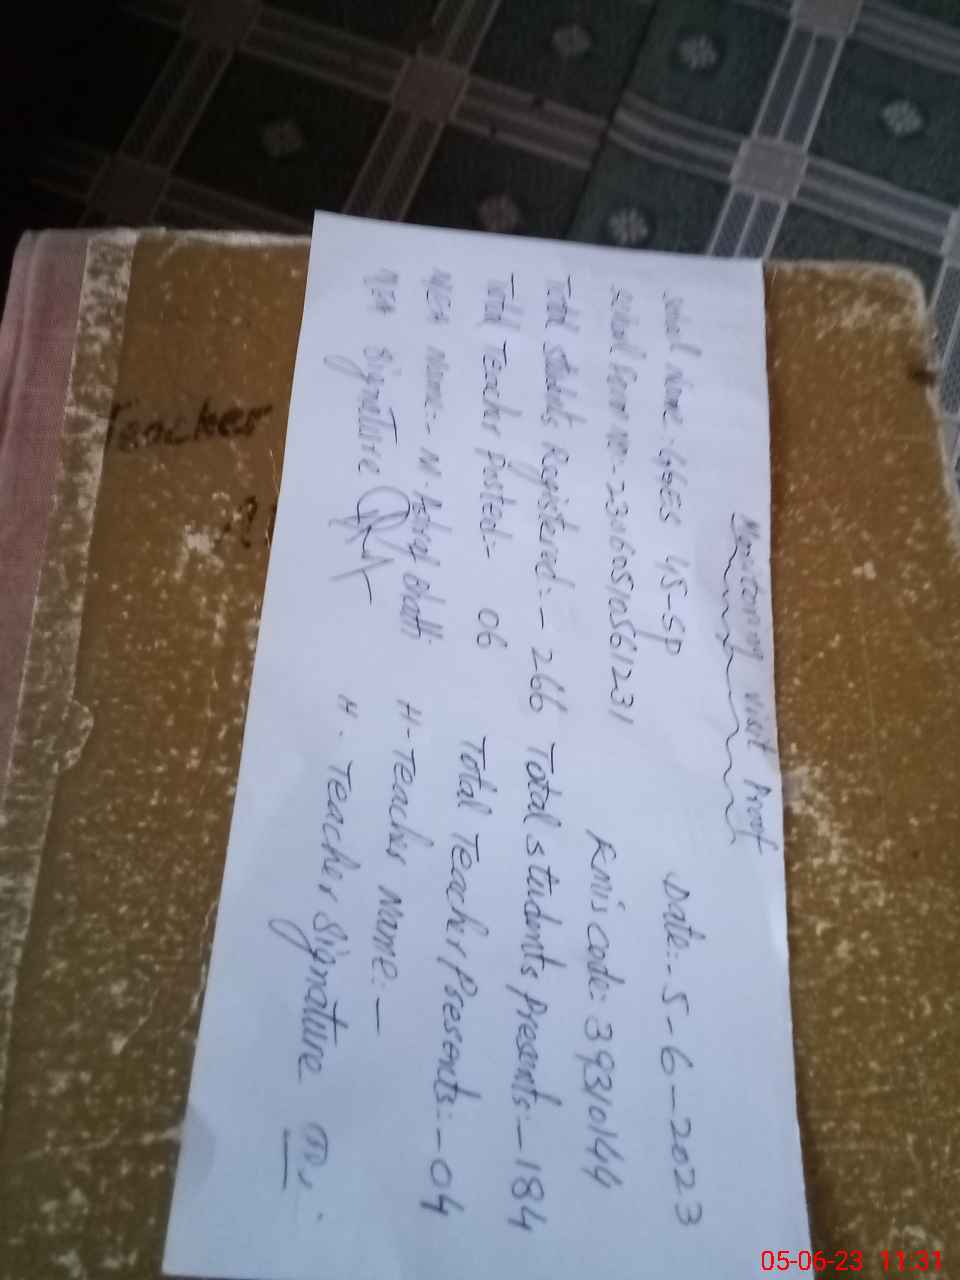 Monitoring visit Proof
School Name:- GGES 45-SP Date:- 5-6-2023
School Form no:- 23060510561231 Emis code: 39310144
Total students Registered:- 266 Total students Presents:- 184
Total Teacher Posted:- 06 Total Teacher Presents:- 04
MEA Name:- M. Ashraf Bhatti H-Teacher Name:-
MEA Signature H. Teacher Signature
Teacher
05-06-23 11:31